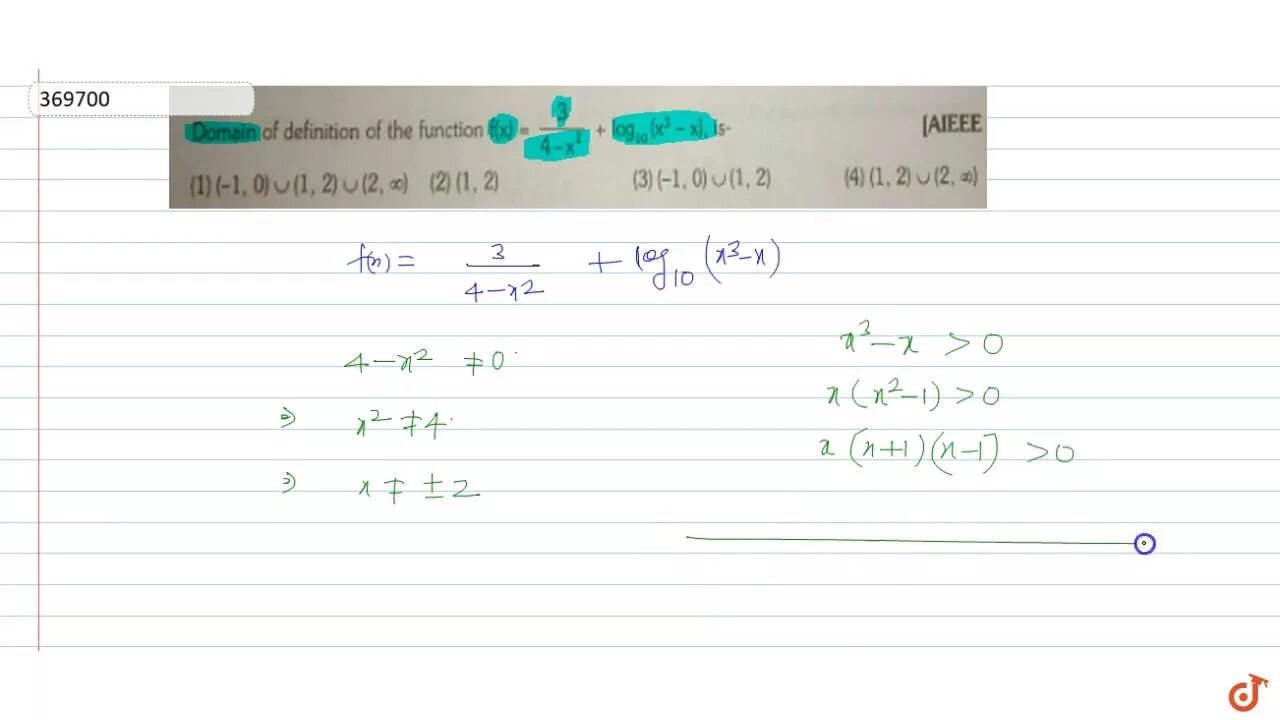 369700
Domain of definition of the function f(x) = 3/(4 – x²) + log₁₀ (x³ – x), is- [AIEEE
(1) (–1, 0) ∪ (1, 2) ∪ (2, ∞) (2) (1, 2) (3) (–1, 0) ∪ (1, 2) (4) (1, 2) ∪ (2, ∞)
f(x) = 3/(4 – x²) + log₁₀ (x³ – x)
4 – x² ≠ 0
⇒ x² ≠ 4
⇒ x ≠ ± 2
x³ – x > 0
x (x² – 1) > 0
x (x + 1) (x – 1) > 0